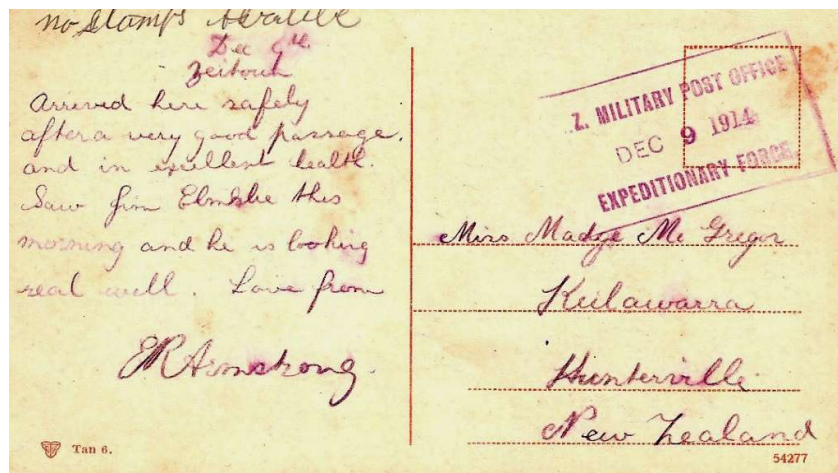 no stamps
Dec 9th
Zeitoun
Arrived here safely
after a very good passage.
and in excellent health.
Saw Jim this
morning and he is looking
real well. Love from
ER Armstrong.
Z. MILITARY POST OFFICE
DEC 9 1914
EXPEDITIONARY FORCE
Miss Madge Mc Gregor
Hunterville
New Zealand
Tan 6.
54277